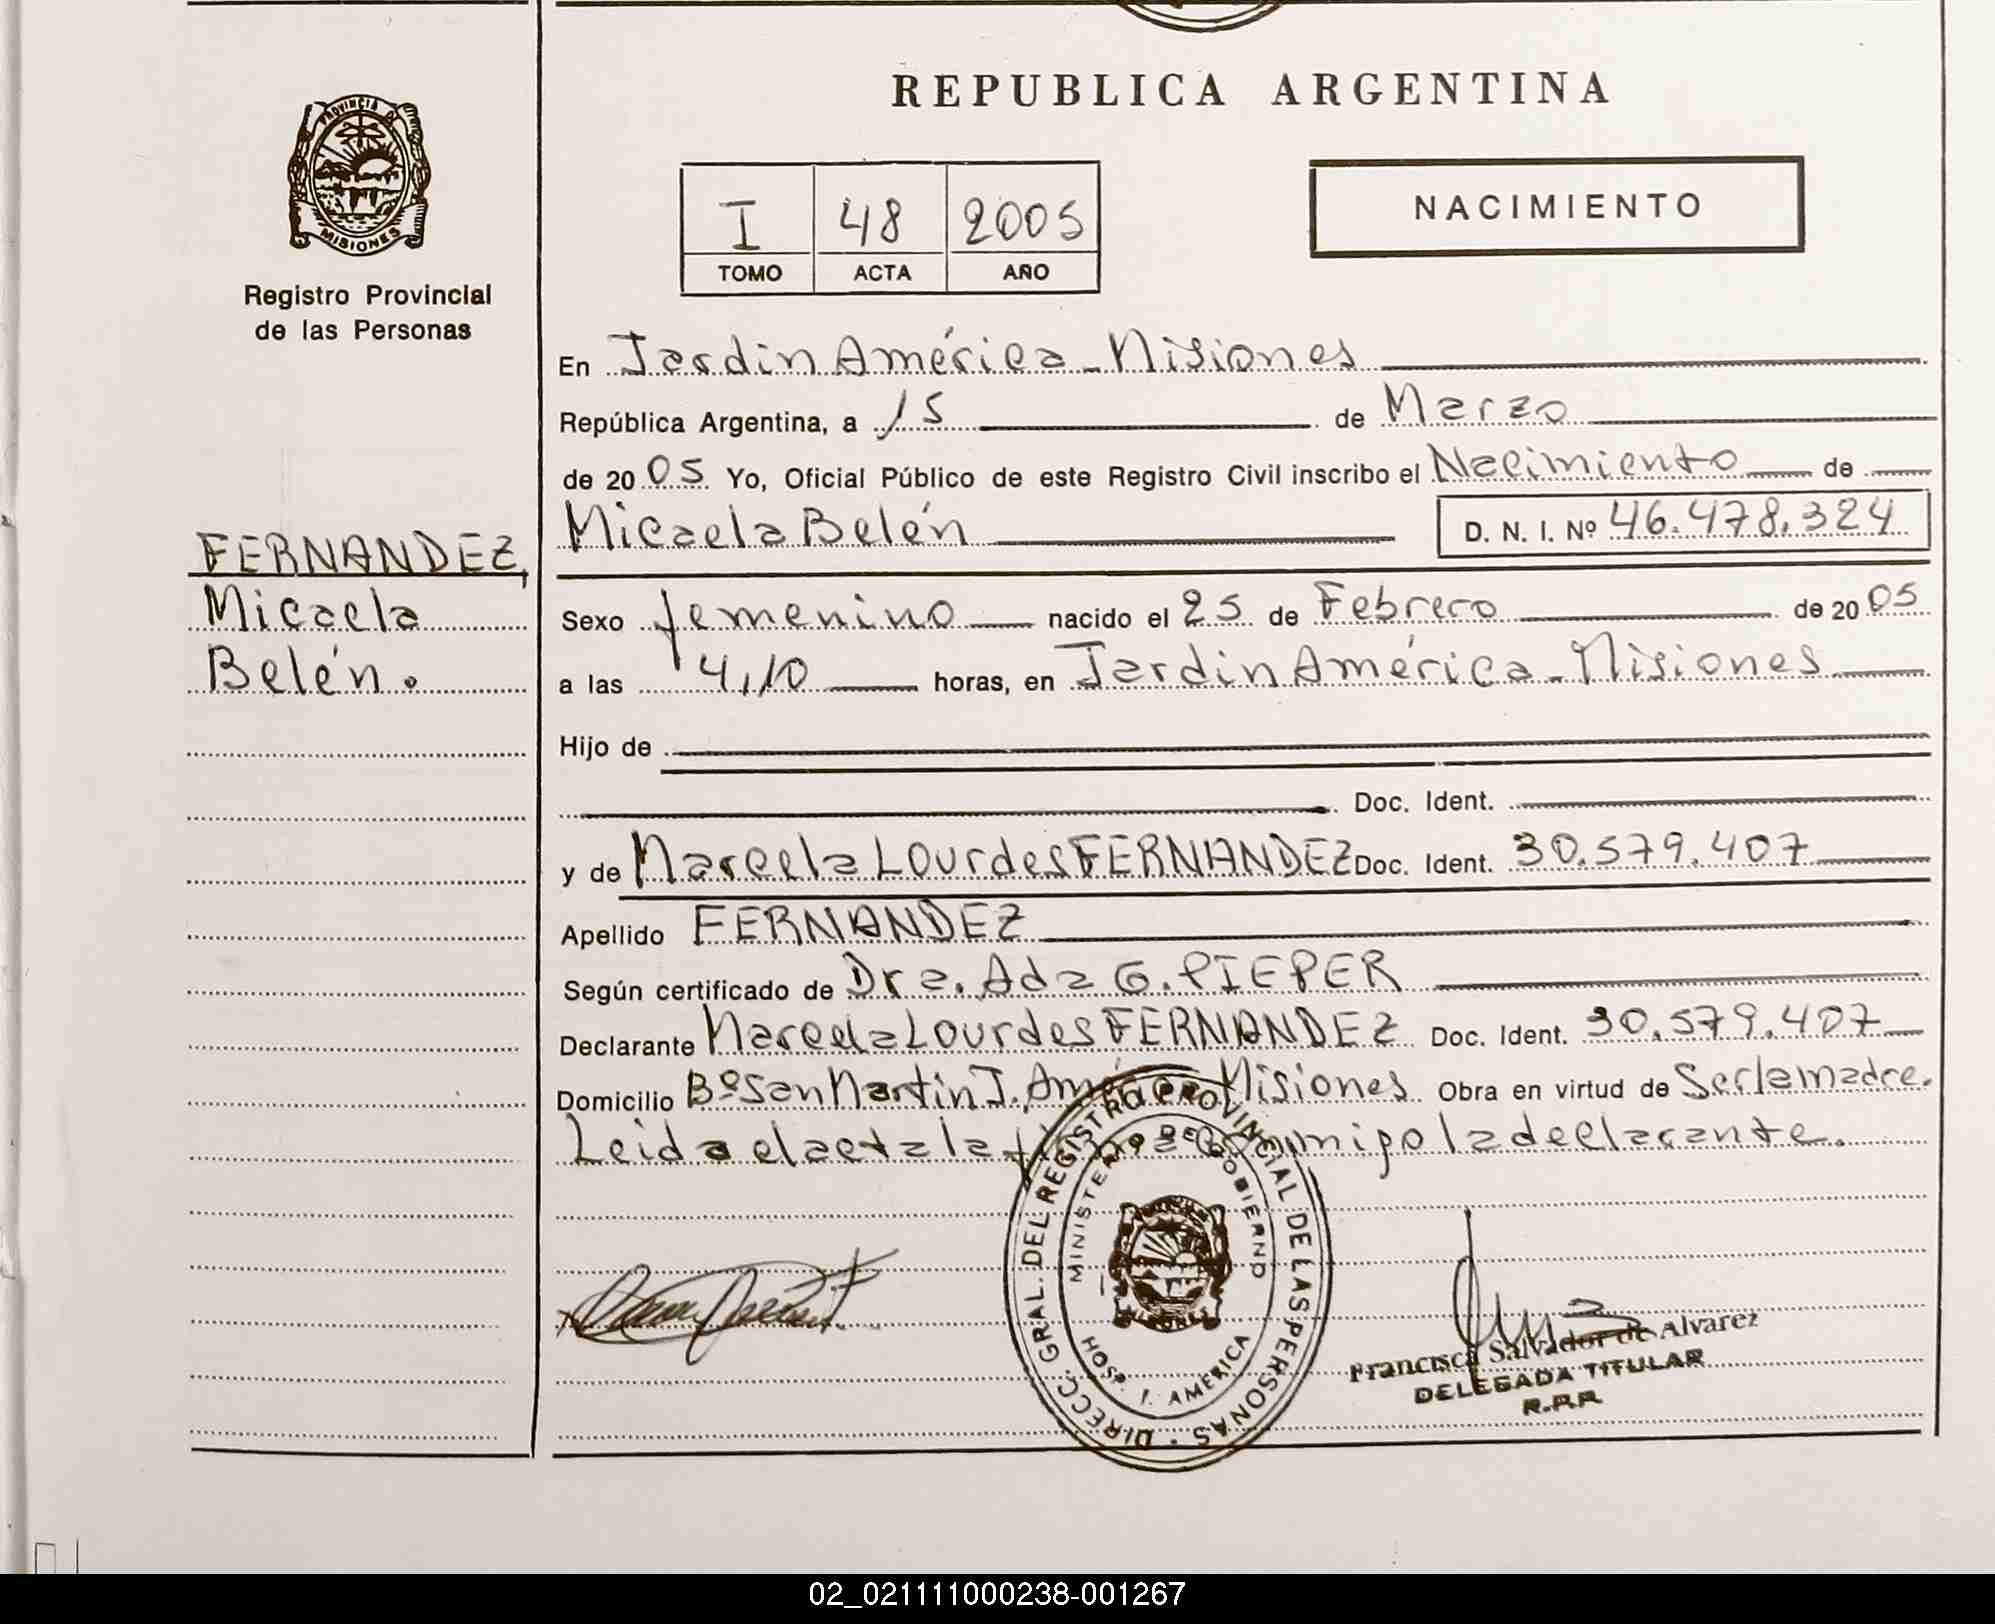 REPUBLICA ARGENTINA
PROVINCIA DE
MISIONES
Registro Provincial
de las Personas
I 48 2005
TOMO ACTA AÑO
NACIMIENTO
En Jardin América - Misiones
República Argentina, a 15 de Marzo
de 2005 Yo, Oficial Público de este Registro Civil inscribo el Nacimiento de
Micaela Belén D. N. I. Nº 46.478.324
FERNANDEZ,
Micaela
Belén.
Sexo femenino nacido el 25 de Febrero de 2005
a las 4,10 horas, en Jardin América - Misiones
Hijo de
Doc. Ident.
y de Marcela Lourdes FERNANDEZ Doc. Ident. 30.579.407
Apellido FERNANDEZ
Según certificado de Dra. Ada G. PIEPER
Declarante Marcela Lourdes FERNANDEZ Doc. Ident. 30.579.407
Domicilio Bº San Martin J. América Misiones Obra en virtud de Ser la madre.
Leida el acta la firma conmigo la declarante.
DIRECC. GRAL. DEL REGISTRO PROVINCIAL DE LAS PERSONAS
MINISTERIO DE GOBIERNO
HOSP. J. AMERICA
Francisca Salvador de Alvarez
DELEGADA TITULAR
R.P.P.
02_021111000238-001267